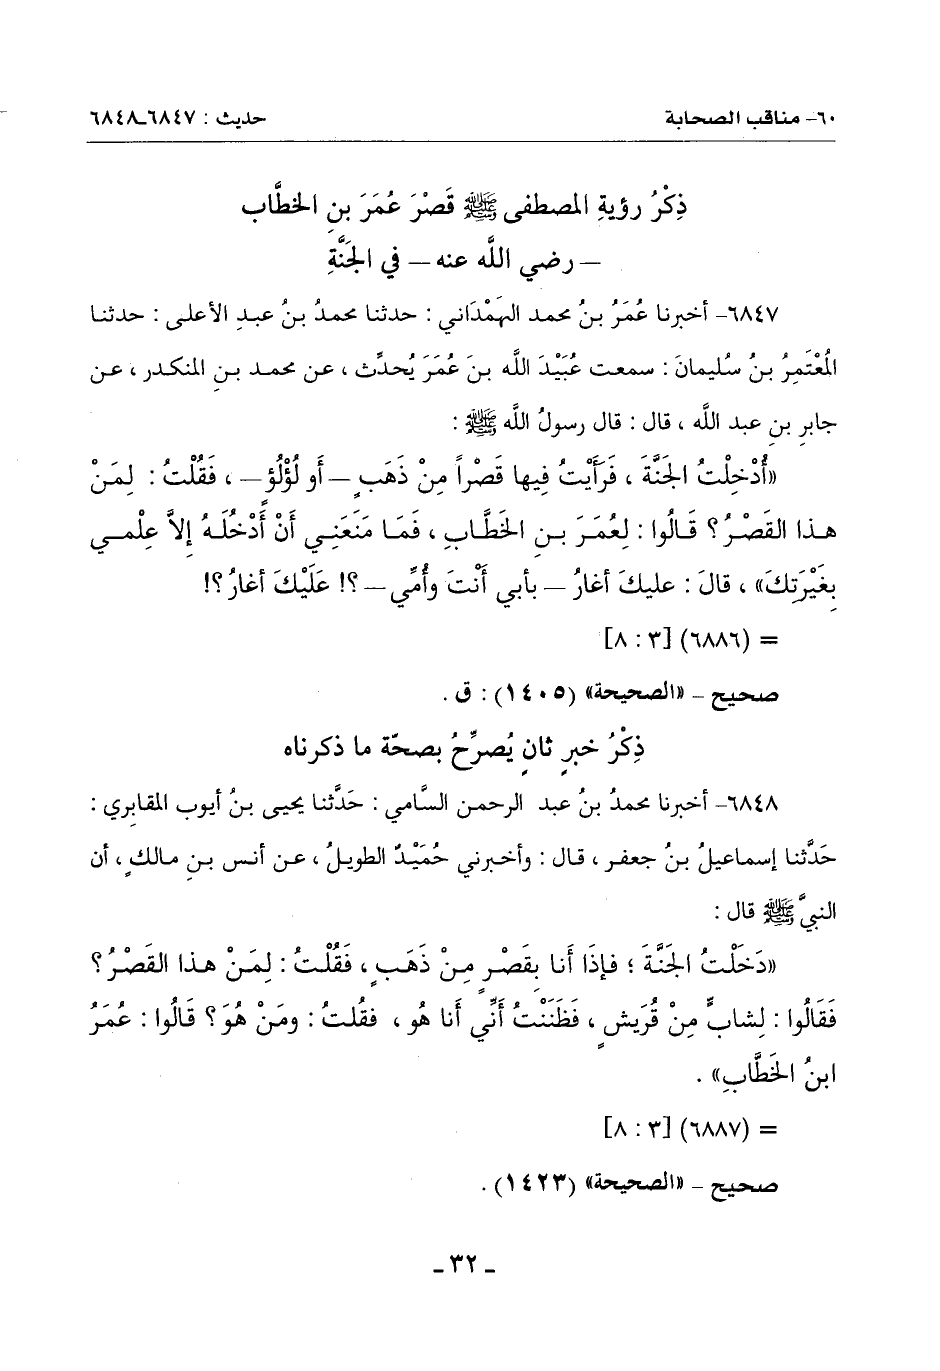 ٦٠- مناقب الصحابة
حديث : ٦٨٤٧ـ٦٨٤٨
ذِكْرُ رؤيةِ المصطفى ﷺ قَصْرَ عُمَرَ بنِ الخطَّاب
– رضي اللَّه عنه – في الجَنَّةِ
٦٨٤٧- أخبرنا عُمَرُ بنُ محمد الهَمْدَاني : حدثنا محمدُ بنُ عبدِ الأعلى : حدثنا
المُعْتَمِرُ بنُ سُليمانَ : سمعت عُبَيْدَ اللَّه بنَ عُمَرَ يُحدِّث ، عن محمد بنِ المنكدر ، عن
جابرِ بنِ عبد اللَّه ، قال : قال رسولُ اللَّه ﷺ :
«أُدْخِلْتُ الجَنَّةَ ، فَرَأَيْتُ فِيها قَصْراً مِنْ ذَهَبٍ – أو لُؤْلُؤ – ، فَقُلْتُ : لِمَنْ
هذا القَصْرُ ؟ قَالُوا : لِعُمَرَ بنِ الخَطَّابِ ، فَمَا مَنَعَنِي أَنْ أَدْخُلَهُ إلاَّ عِلْمي
بِغَيْرَتِكَ» ، قالَ : عليكَ أغارُ – بأبي أَنْتَ وأُمِّي – ؟! عَلَيْكَ أغارُ ؟!
= (٦٨٨٦) [٣ : ٨]
صحيح - «الصحيحة» (١٤٠٥) : ق .
ذِكْرُ خبرٍ ثانٍ يُصرِّحُ بصحّة ما ذكرناه
٦٨٤٨- أخبرنا محمدُ بنُ عبد الرحمن السَّامي : حَدَّثنا يحيى بنُ أيوب المقابري :
حَدَّثنا إسماعيلُ بنُ جعفر ، قال : وأخبرني حُمَيْدٌ الطويلُ ، عن أنس بنِ مالكٍ ، أن
النبيَّ ﷺ قال :
«دَخَلْتُ الجَنَّةَ ؛ فإذَا أنا بِقَصْرٍ مِنْ ذَهَبٍ ، فَقُلْتُ : لِمَنْ هذا القَصْرُ ؟
فَقَالُوا : لِشابٍّ مِنْ قُرَيشٍ ، فَظَنَنْتُ أَنِّي أنا هُو ، فقُلتُ : ومَنْ هُوَ ؟ قَالُوا : عُمَرُ
ابنُ الخَطَّابِ» .
= (٦٨٨٧) [٣ : ٨]
صحيح - «الصحيحة» (١٤٢٣) .
ـ ٣٢ ـ